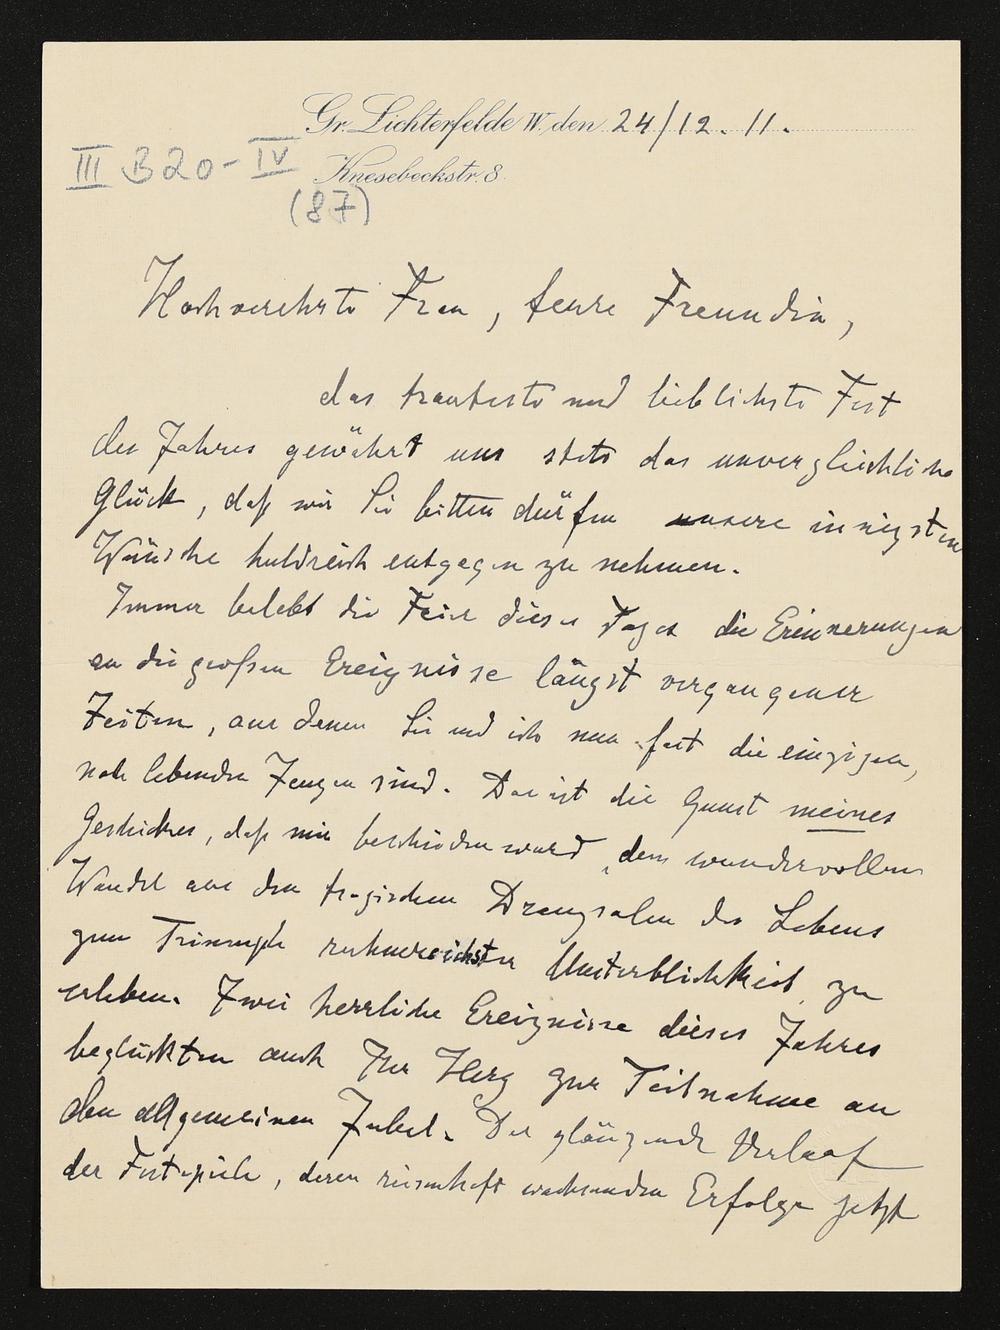 Gr. Lichterfelde W. den 24/12. 11.
III B 20 - IV
Knesebeckstr. 8.
(87)
Hochverehrte Frau, teure Freundin,
das trauteste und lieblichste Fest
des Jahres gewährt uns stets das unvergleichliche
Glück, daß wir Sie bitten dürfen unsere innigsten
Wünsche huldreich entgegen zu nehmen.
Immer belebt die Feier dieses Tages die Erinnerungen
an die großen Ereignisse längst vergangener
Zeiten, aus denen Sie und ich nun fast die einzigen,
noch lebenden Zeugen sind. Das ist die Gunst meines
Geschickes, daß mir beschieden ward, den wundervollen
Wandel aus den tragischen Drangsalen des Lebens
zum Triumph ruhmreichster Unsterblichkeit zu
erleben. Zwei herrliche Ereignisse dieses Jahres
beglückten auch Ihr Herz zur Teilnahme an
dem allgemeinen Jubel. Der glänzende Verlauf
der Festspiele, deren riesenhaft wachsenden Erfolge jetzt